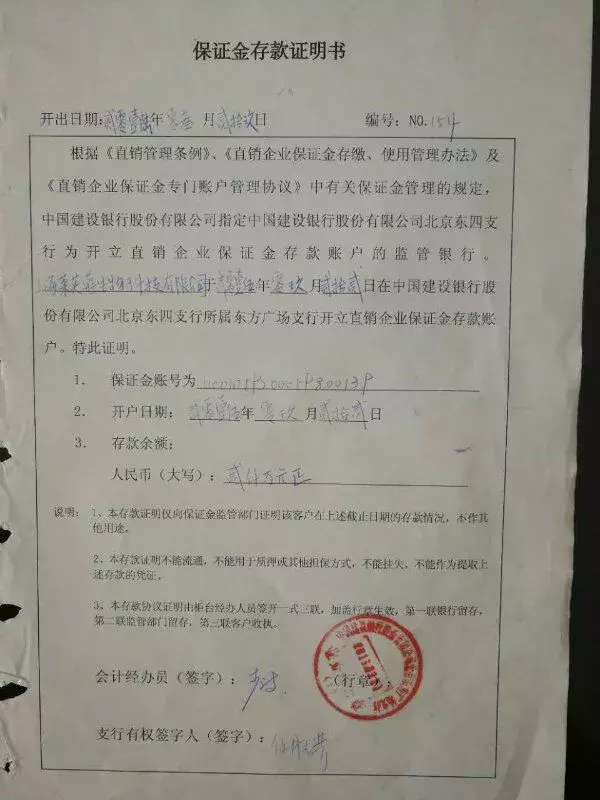 保证金存款证明书
开出日期:贰零壹陆年 零叁 月贰拾玖日 编号: NO.154
根据《直销管理条例》、《直销企业保证金存缴、使用管理办法》及
《直销企业保证金专门账户管理协议》中有关保证金管理的规定,
中国建设银行股份有限公司指定中国建设银行股份有限公司北京东四支
行为开立直销企业保证金存款账户的监管银行。
科技有限公司于贰零壹伍年零玖月贰拾贰日在中国建设银行股
份有限公司北京东四支行所属东方广场支行开立直销企业保证金存款账
户。特此证明。
1. 保证金账号为
2. 开户日期: 贰零壹伍年 零玖 月贰拾贰日
3. 存款余额:
人民币(大写): 贰仟万元正
说明: 1、本存款证明仅向保证金监管部门证明该客户在上述截止日期的存款情况,不作其
他用途。
2、本存款证明不能流通,不能用于质押或其他担保方式,不能挂失,不能作为提取上
述存款的凭证。
3、本存款协议证明由柜台经办人员签开一式三联,加盖行章生效,第一联银行留存,
第二联监管部门留存,第三联客户收执。
会计经办员(签字): (行章)
支行有权签字人(签字):